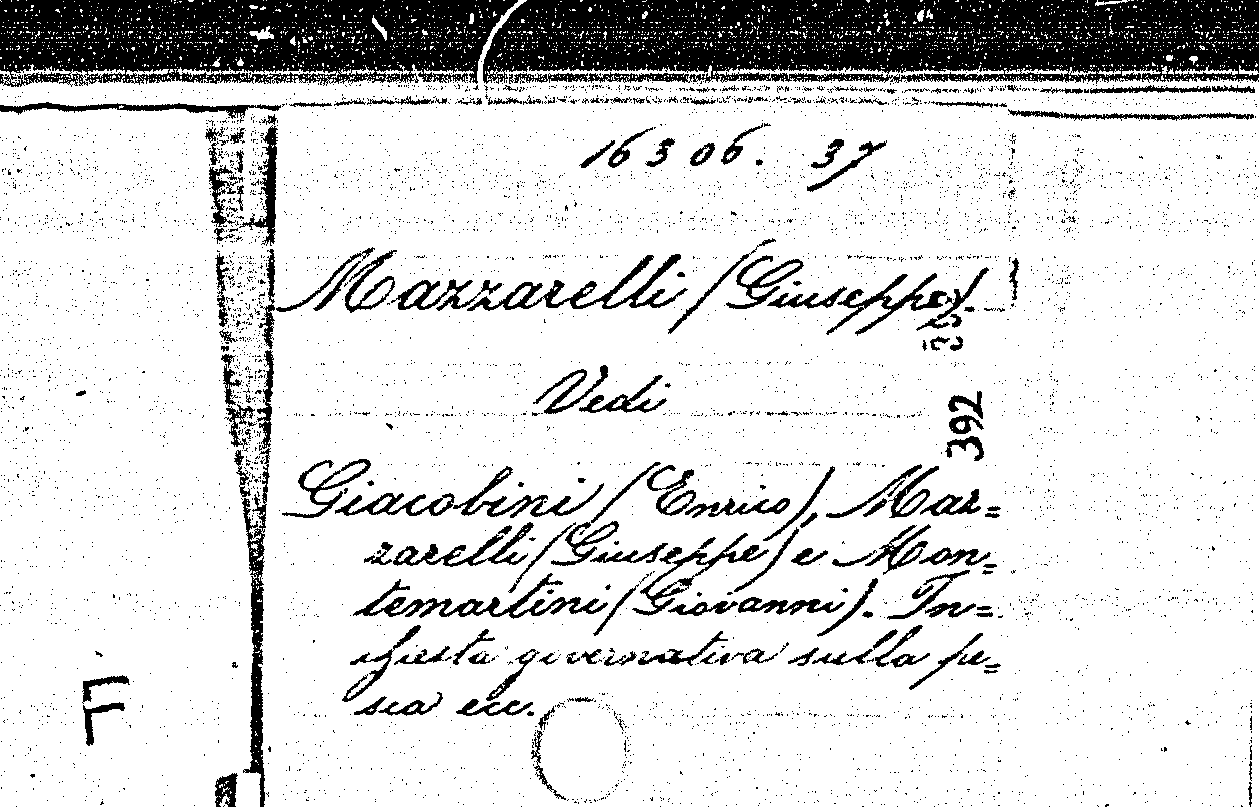 16306. 37
Mazzarelli (Giuseppe).
392
Vedi
Giacobini (Enrico), Maz=
zarelli (Giuseppe) e Mon=
temartini (Giovanni). In=
chiesta governativa sulla pe=
sca ecc.
F